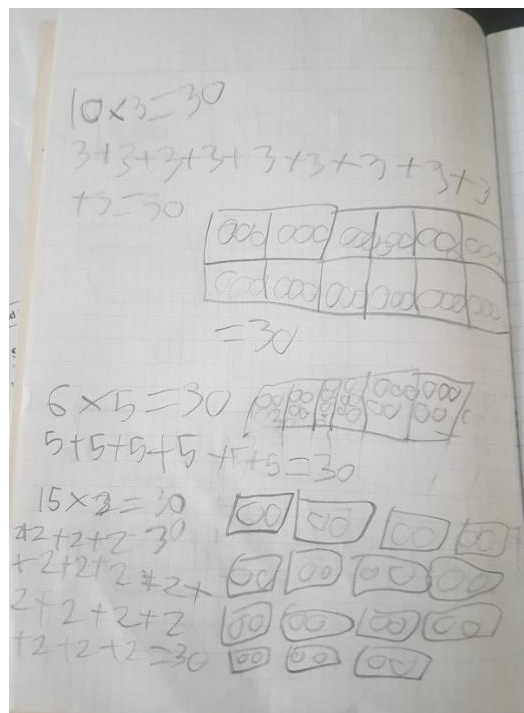 10×3=30
3+3+3+3+3+3+3+3+3
+3=30
=30
6×5=30
5+5+5+5+5+5=30
15×2=30
+2+2+2 30
+2+2+2+2+
2+2+2+2
+2+2+2=30